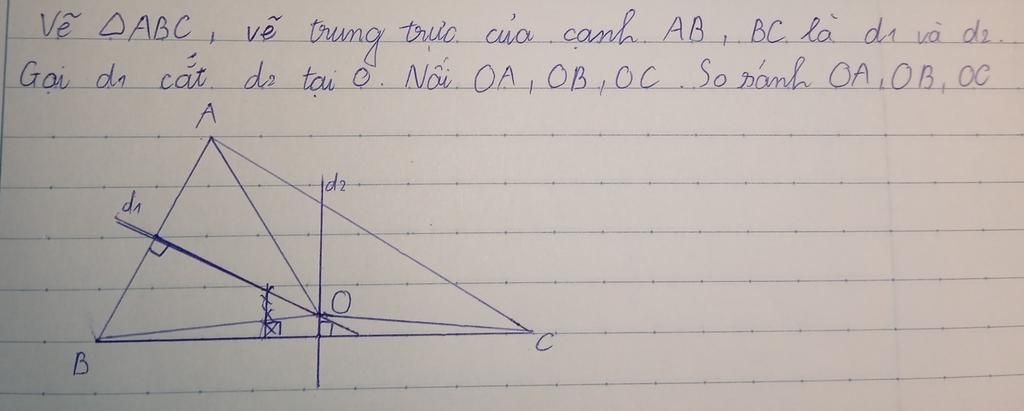 Vẽ △ABC, vẽ trung trực của cạnh AB, BC là d1 và d2.
Gọi d1 cắt d2 tại O. Nối OA, OB, OC. So sánh OA, OB, OC
A
d2
d1
O
C
B